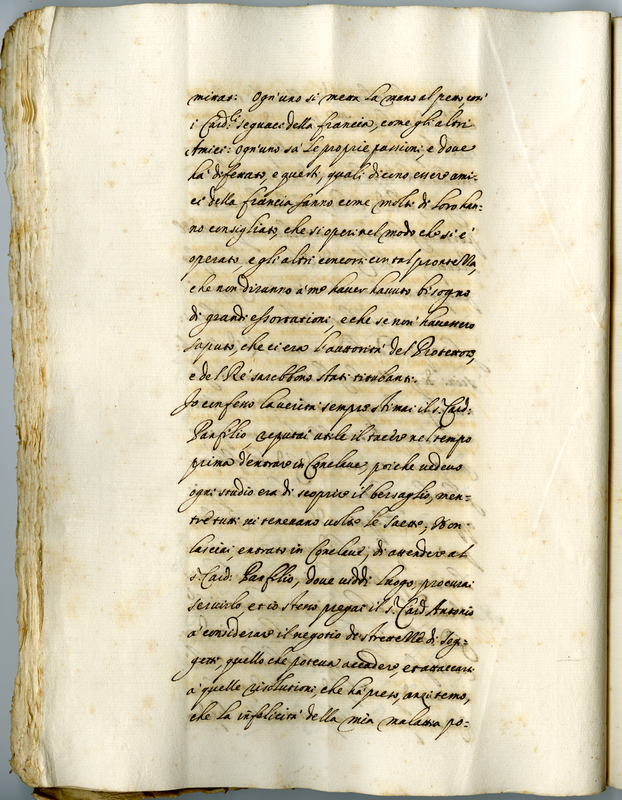 minar: Ogn'uno si metta la mano al petto, così
i Card.li seguaci della francia, come gli altri
Amici: ogn'uno sà le proprie passioni, e dove
hà difettato, e questi, quali dicono essere ami=
ci della francia sanno come molti di loro han=
no consigliato, che si operi nel modo che si è
operato, e gli altri con tal prontezza,
che non diranno à me haver havuto bisogno
di grandi essortationi, e che se non havessero
saputo, che ci era l'auttorità del Protettore,
e del Rè sarebbono stati titubanti.
Io confesso la verità sempre stimai il S. Card:
Panfilio, reputai utile il tacere nel tempo
prima d'entrare in Conclave, poiche vedevo
ogni studio era di scoprire il bersaglio, men=
tre tutti vi tenevano volte le saette, Non
lasciai, entrato in Conclave, di attendere al
S. Card: Panfilio, dove viddi luogo procurai
servirlo, et io stesso pregai il S.r Card Antonio
à considerare il negotio di strettezze di sog=
getti, quello che poteva accadere, et attaccarsi
à quelle risolutioni, che hà preso, anzi temo,
che la infelicità della mia malattia po=